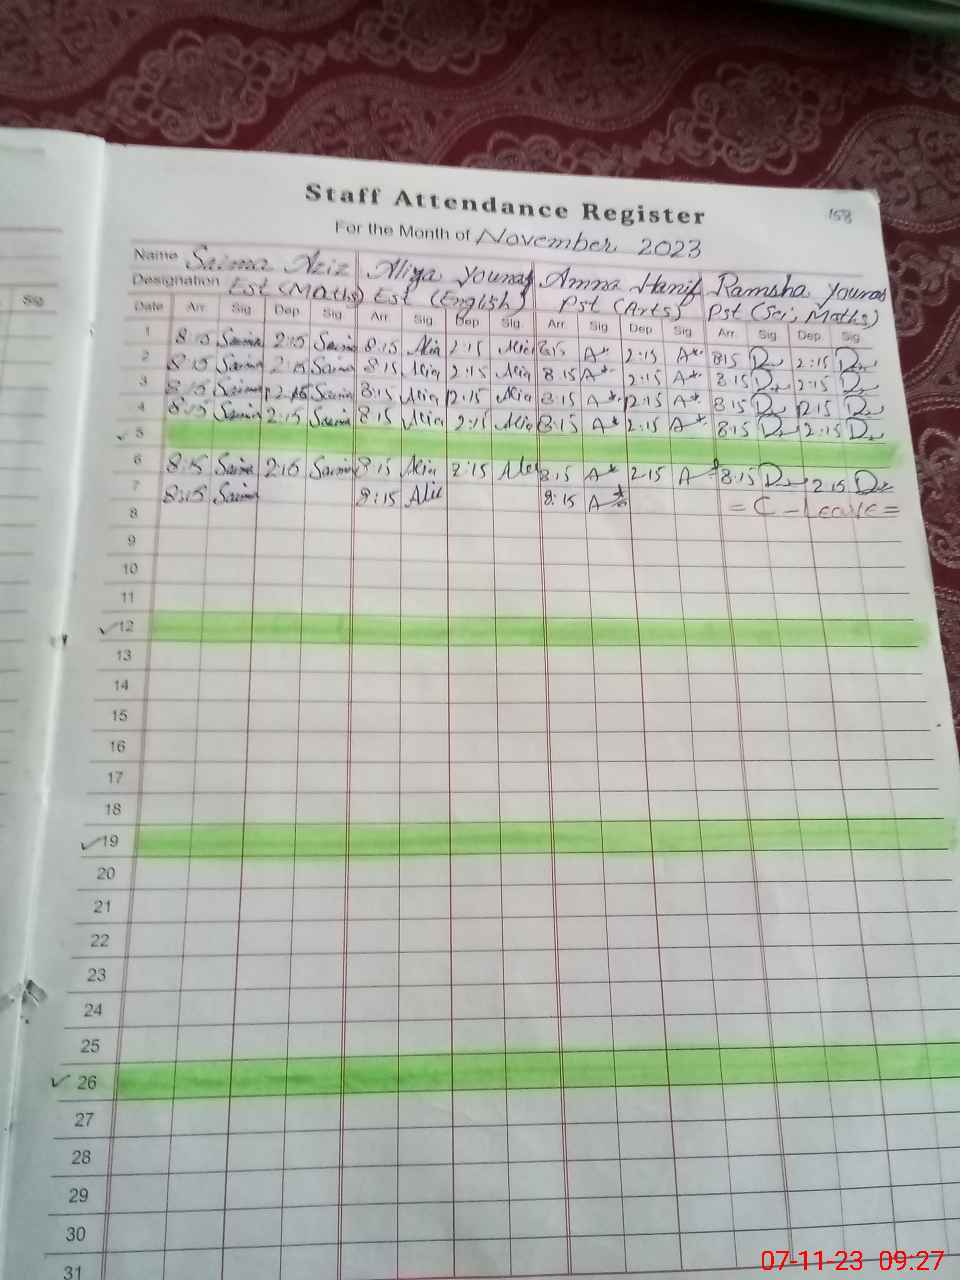 Staff Attendance Register
158
For the Month of November 2023
Name Saima Aziz Aliya Younas Amna Hanif Ramsha Younas
Designation Est (Maths) Est (English) Pst (Arts) Pst (Sci, Maths)
Sig
Date Arr Sig Dep Sig Arr Sig Dep Sig Arr Sig Dep Sig Arr Sig Dep Sig
1 8:15 Saima 2:15 Saima 8:15 Alia 2:15 Alia 8:15 A 2:15 A 8:15 2:15
2 8:15 Saima 2:15 Saima 8:15 Alia 2:15 Alia 8:15 A 2:15 A 8:15 2:15
3 8:15 Saima 2:15 Saima 8:15 Alia 2:15 Alia 8:15 A 2:15 A 8:15 2:15
4 8:15 Saima 2:15 Saima 8:15 Alia 2:15 Alia 8:15 A 2:15 A 8:15 2:15
5
6 8:15 Saima 2:15 Saima 8:15 Alia 2:15 Alia 8:15 A 2:15 A 8:15 2:15
7 8:15 Saima 8:15 Alia 8:15 A = C - Leave =
8
9
10
11
12
13
14
15
16
17
18
19
20
21
22
23
24
25
26
27
28
29
30
31
07-11-23 09:27